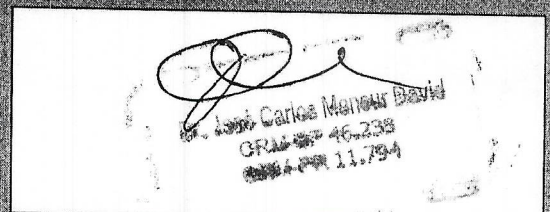 Dr. José Carlos Mansur David
CRM-SP 46.238
CRM-PR 11.794